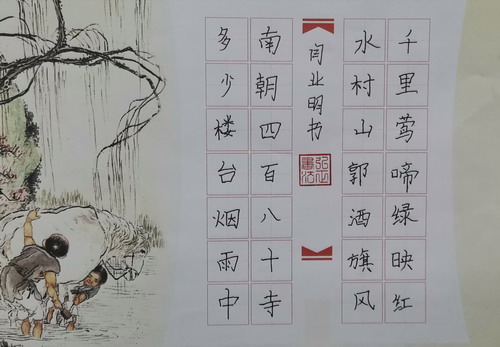 千里莺啼绿映红
水村山郭酒旗风
闫业明书
南朝四百八十寺
多少楼台烟雨中